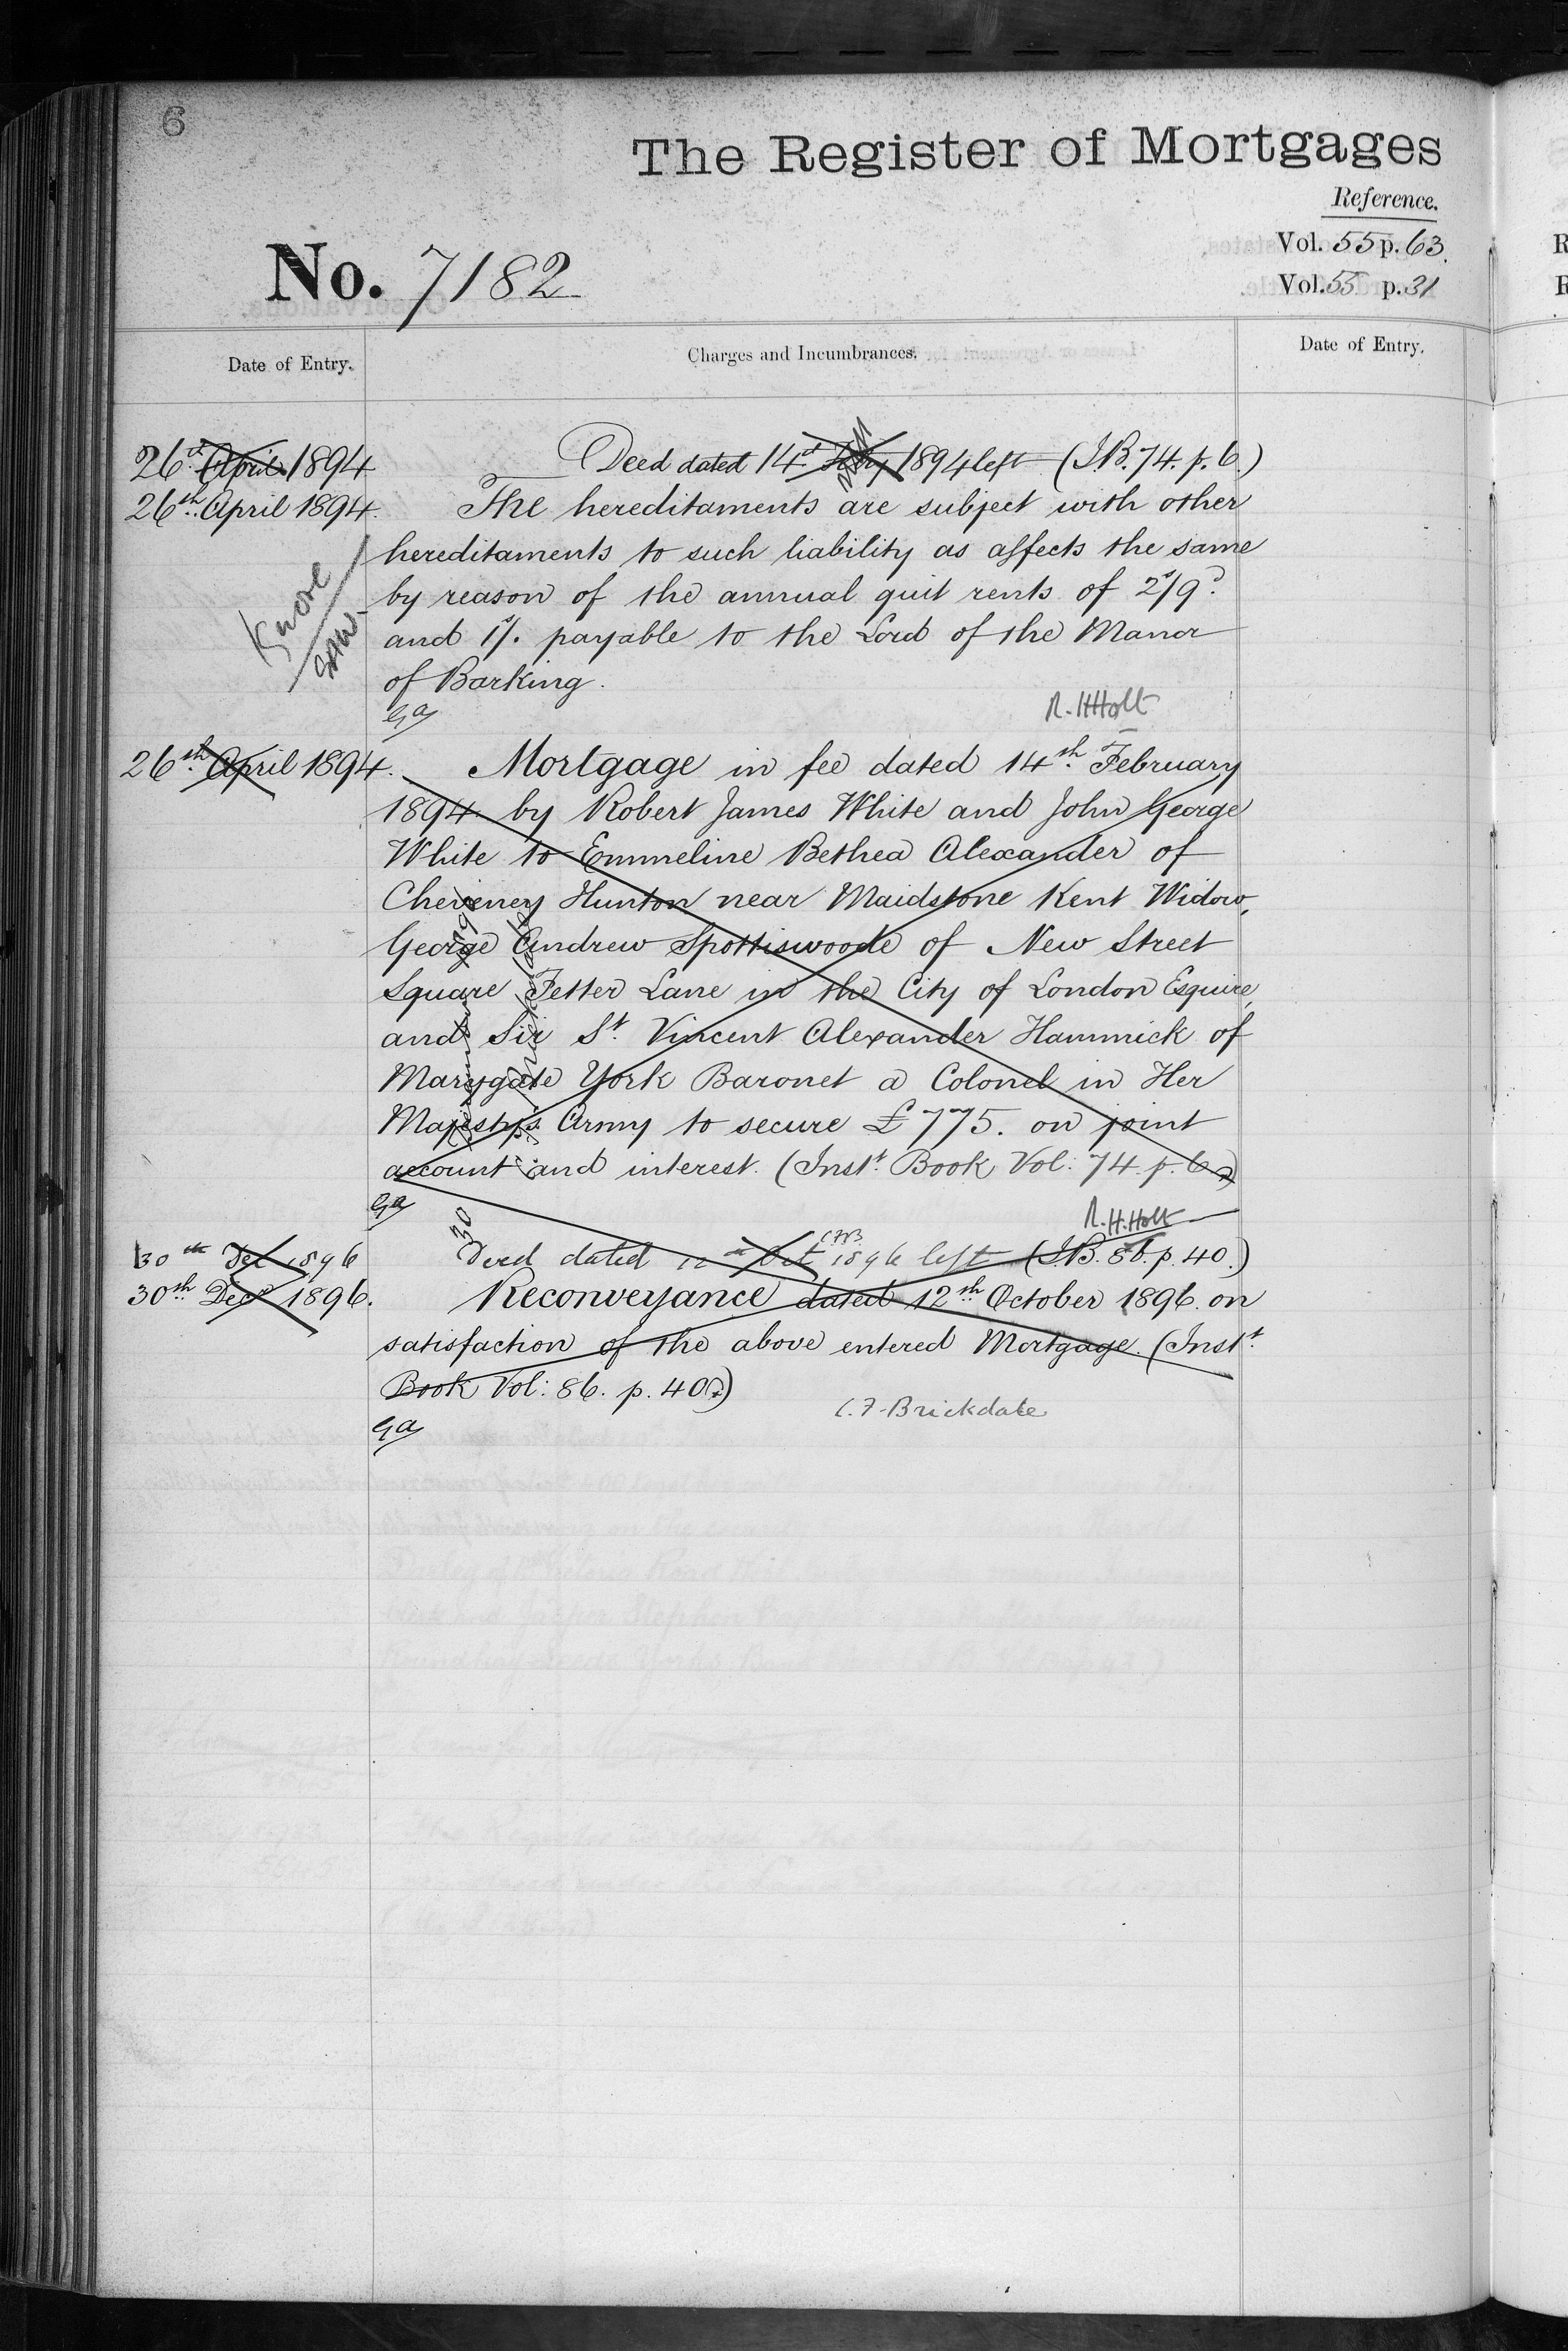 6
The Register of Mortgages
Reference.
Vol. 55 p. 63.
No. 7182
Vol. 55 p. 31
Date of Entry.
Charges and Incumbrances.
Date of Entry.
26th April 1894
Deed dated 14th Feby 1894 left (I.B. 74. p. 6.)
26th April 1894.
The hereditaments are subject with other
hereditaments to such liability as affects the same
by reason of the annual quit rents of 2s/9d
and 1s/. payable to the Lord of the Manor
of Barking.
R. H Holt
26th April 1894.
Mortgage in fee dated 14th February
1894 by Robert James White and John George
White to Emmeline Bethea Alexander of
Cheveney Hunton near Maidstone Kent Widow,
George Andrew Spottiswoode of New Street
Square Fetter Lane in the City of London Esquire,
and Sir St. Vincent Alexander Hammick of
Marygate York Baronet a Colonel in Her
Majesty's Army to secure £775. on joint
account and interest. (Inst. Book Vol: 74 p. 6.)
Ga
R. H. Holt
30th Dec 1896
Deed dated 12th Oct 1896 left (I.B. 86. p. 40.)
30th Decr 1896.
Reconveyance dated 12th October 1896. on
satisfaction of the above entered Mortgage. (Inst.
Book Vol: 86. p. 40.)
C. F. Brickdale
Ga